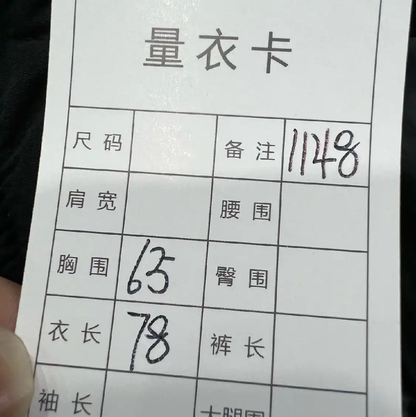 量衣卡
尺码 备注 1148
肩宽 腰围
胸围 65 臀围
衣长 78 裤长
袖长 大腿围